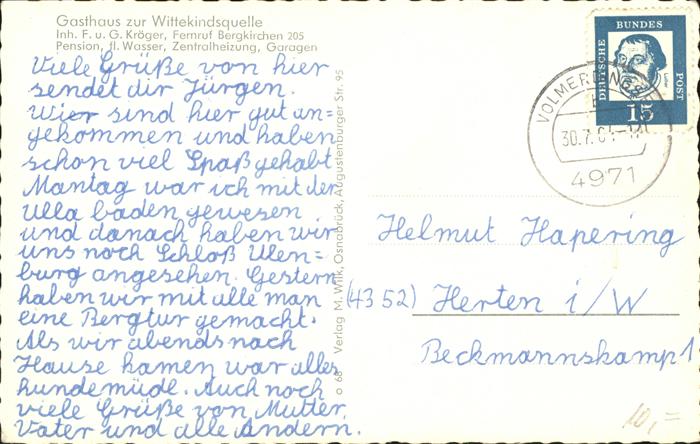 Gasthaus zur Wittekindsquelle
Inh. F. u. G. Kröger, Fernruf Bergkirchen 205
Pension, fl. Wasser, Zentralheizung, Garagen
Viele Grüße von hier
sendet dir Jürgen.
Wier sind hier gut an=
gekommen und haben
schon viel Spaß gehabt
Mantag war ich mit der
Ulla baden gewesen
und danach haben wir
uns noch Schloß Ulen=
burg angesehen. Gestern
haben wir mit alle man
eine Bergtur gemacht.
Als wir abends nach
Hause kamen war alles
hundemüde. Auch noch
viele Grüße von Mutter,
Vater und alle Andern.
o 68 Verlag M. Wilk, Osnabrück, Augustenburger Str. 95
DEUTSCHE BUNDES POST
15
30.7.
4971
Helmut Hapering
(4352) Herten i/W
Beckmannskamp 1
10,=